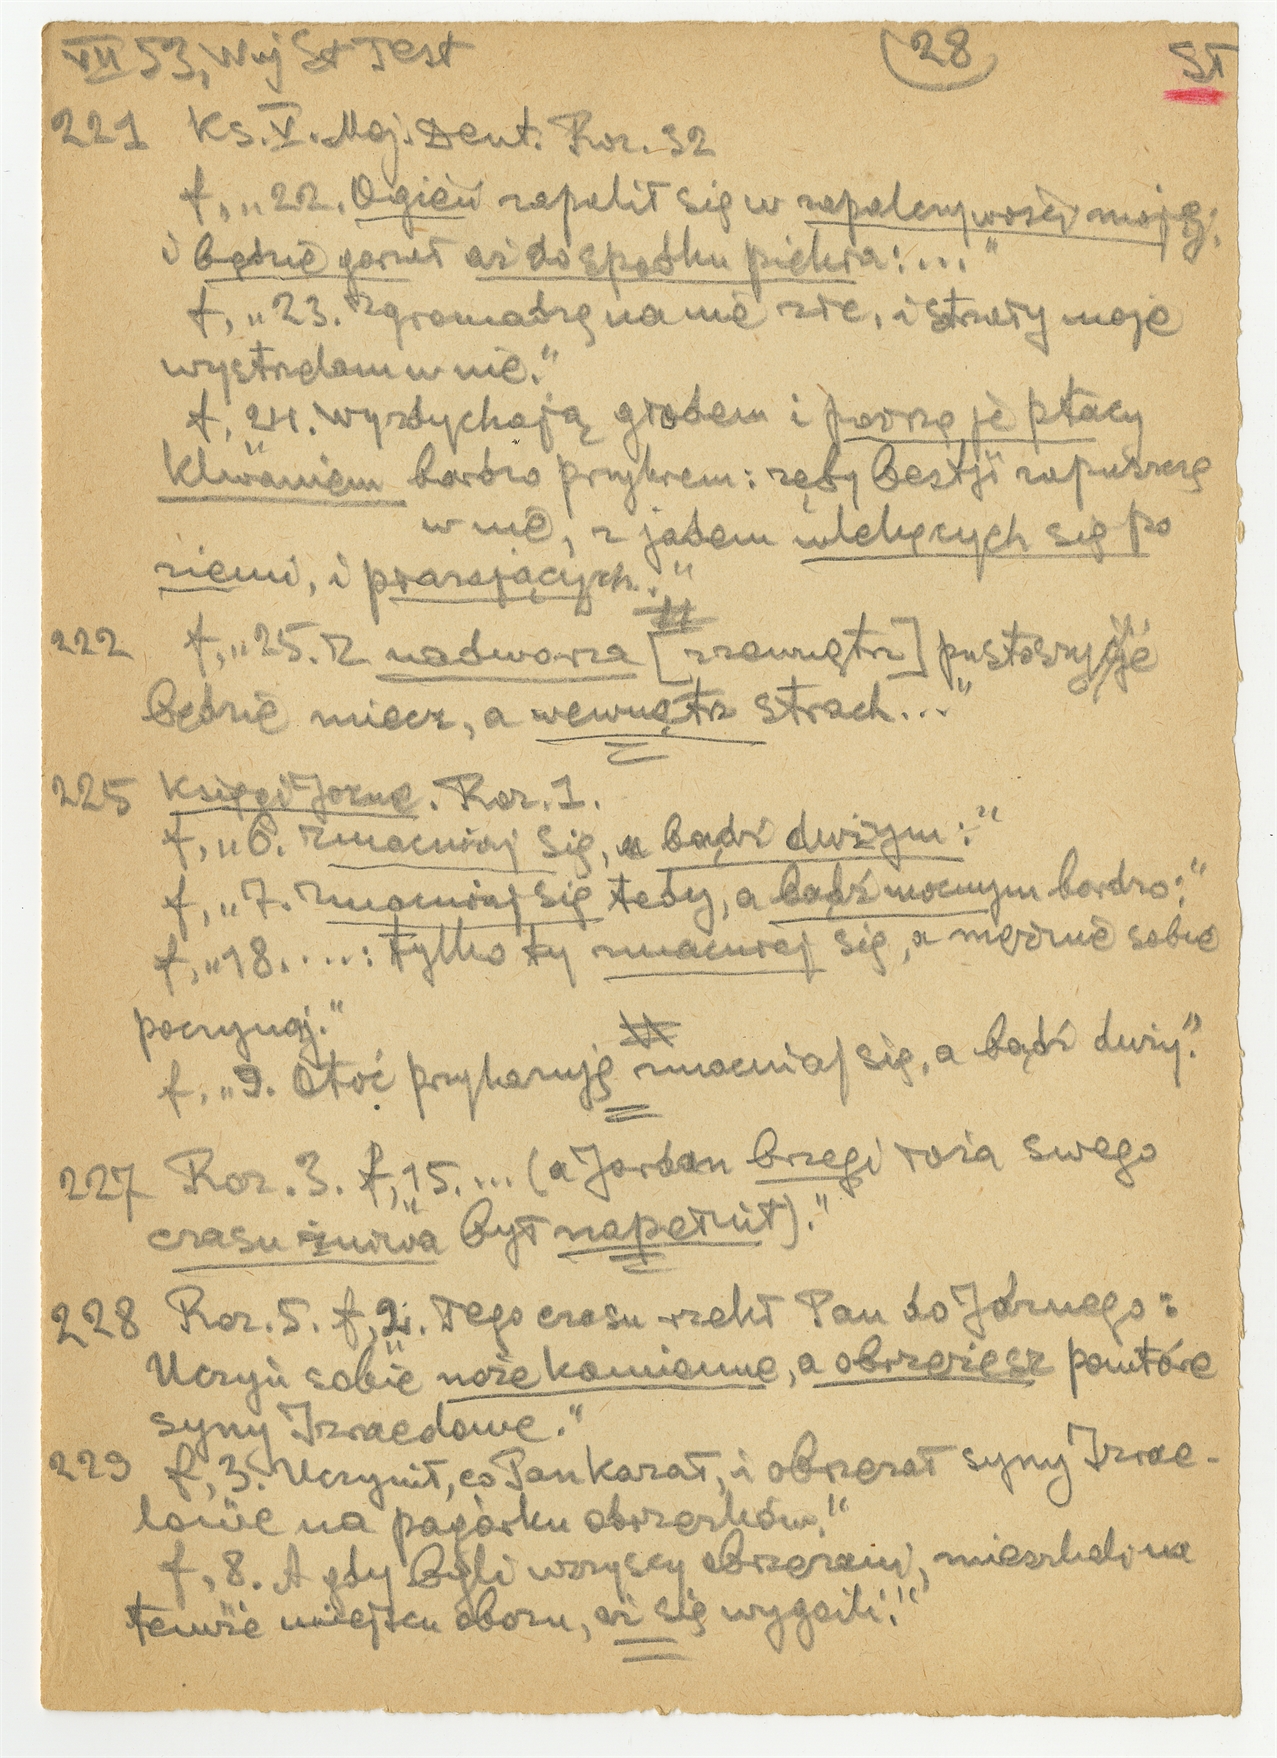 VII 53, Wuj St Test
28
ST
221 Ks. V. Moj. Deut. Roz. 32
f, „22. Ogień zapalił się w zapalczywości mojej;
i będzie gorzał aż do spodku piekła: ..."
f, „23. Zgromadzę na nie złe, i strzały moje
wystrzelam w nie."
f, „24. Wyzdychają głodem i pożrą je ptacy
klwaniem bardzo przykrem: zęby bestji zapuszczę
w nie, z jadem wlekących się po
ziemi, i płazających."
222 f, „25. Z nadworza [zzewnętrz] pustoszyć je
będzie miecz, a wewnątrz strach..."
225 Księgi Jozue. Roz. 1.
f, „6. Zmacniaj się, a bądź dużym:"
f, „7. Zmacniaj się tedy, a bądź mocnym bardzo:"
f, „18. ...: tylko ty zmacniaj się, a mężnie sobie
poczynaj."
f, „9. Otoć przykazuję zmacniaj się, a bądź duży."
227 Roz. 3. f, „15. ... (a Jordan brzegi łoża swego
czasu żniwa był napełnił)."
228 Roz. 5. f, „2. Tego czasu rzekł Pan do Jozuego:
Uczyń sobie noże kamienne, a obrzeżesz powtóre
syny Izraelowe."
229 f, „3. Uczynił, co Pan kazał, i obrzezał syny Izrae-
lowe na pagórku obrzezków."
f, 8. A gdy byli wszyscy obrzezani, mieszkali na
temże miejscu obozu, aż się wygoili."